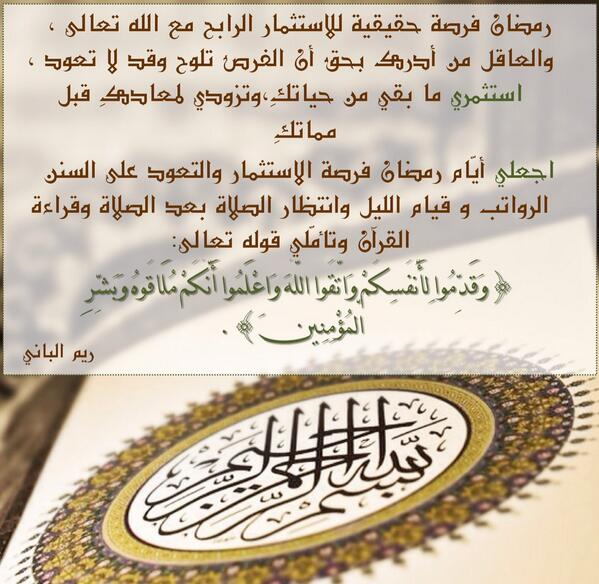 رمضان فرصة حقيقية للاستثمار الرابح مع الله تعالى ،
والعاقل من أدرك بحق أن الفرص تلوح وقد لا تعود ،
استثمري ما بقي من حياتكِ،وتزودي لمعادكِ قبل
مماتكِ
اجعلي أيّام رمضان فرصة الاستثمار والتعود على السنن
الرواتب و قيام الليل وانتظار الصلاة بعد الصلاة وقراءة
القرآن وتأملي قوله تعالى:
﴿ وَقَدِّمُوا لِأَنفُسِكُمْ وَاتَّقُوا اللَّهَ وَاعْلَمُوا أَنَّكُم مُّلَاقُوهُ وَبَشِّرِ
الْمُؤْمِنِينَ ﴾ .
ريم الباني
بسم الله الرحمن الرحيم